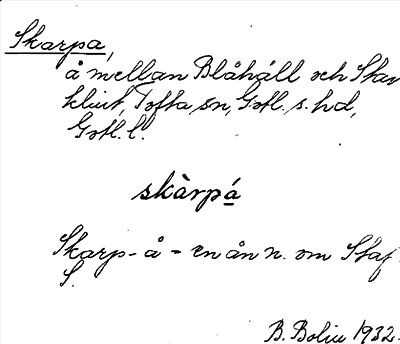 Skarpa,
å mellan Blåhäll och Stav
klint, Tofta sn, Gotl. s. hd,
Gotl. l.
skàrpá
Skarp-å = en ån n. om Staf
S.
B. Bolin 1932.